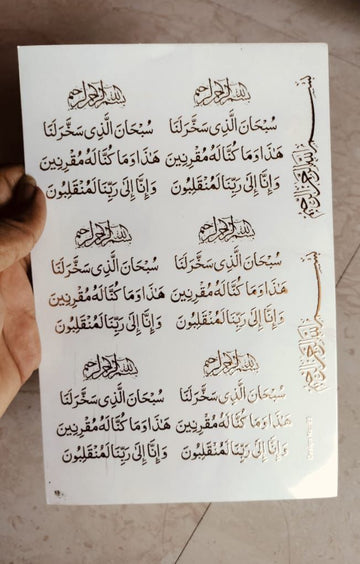 بسم الله الرحمن الرحيم
سُبْحَانَ الَّذِي سَخَّرَ لَنَا
هَٰذَا وَمَا كُنَّا لَهُ مُقْرِنِينَ
وَإِنَّا إِلَىٰ رَبِّنَا لَمُنْقَلِبُونَ
بسم الله الرحمن الرحيم
سُبْحَانَ الَّذِي سَخَّرَ لَنَا
هَٰذَا وَمَا كُنَّا لَهُ مُقْرِنِينَ
وَإِنَّا إِلَىٰ رَبِّنَا لَمُنْقَلِبُونَ
بسم الله الرحمن الرحيم
بسم الله الرحمن الرحيم
سُبْحَانَ الَّذِي سَخَّرَ لَنَا
هَٰذَا وَمَا كُنَّا لَهُ مُقْرِنِينَ
وَإِنَّا إِلَىٰ رَبِّنَا لَمُنْقَلِبُونَ
بسم الله الرحمن الرحيم
سُبْحَانَ الَّذِي سَخَّرَ لَنَا
هَٰذَا وَمَا كُنَّا لَهُ مُقْرِنِينَ
وَإِنَّا إِلَىٰ رَبِّنَا لَمُنْقَلِبُونَ
بسم الله الرحمن الرحيم
بسم الله الرحمن الرحيم
سُبْحَانَ الَّذِي سَخَّرَ لَنَا
هَٰذَا وَمَا كُنَّا لَهُ مُقْرِنِينَ
وَإِنَّا إِلَىٰ رَبِّنَا لَمُنْقَلِبُونَ
بسم الله الرحمن الرحيم
سُبْحَانَ الَّذِي سَخَّرَ لَنَا
هَٰذَا وَمَا كُنَّا لَهُ مُقْرِنِينَ
وَإِنَّا إِلَىٰ رَبِّنَا لَمُنْقَلِبُونَ